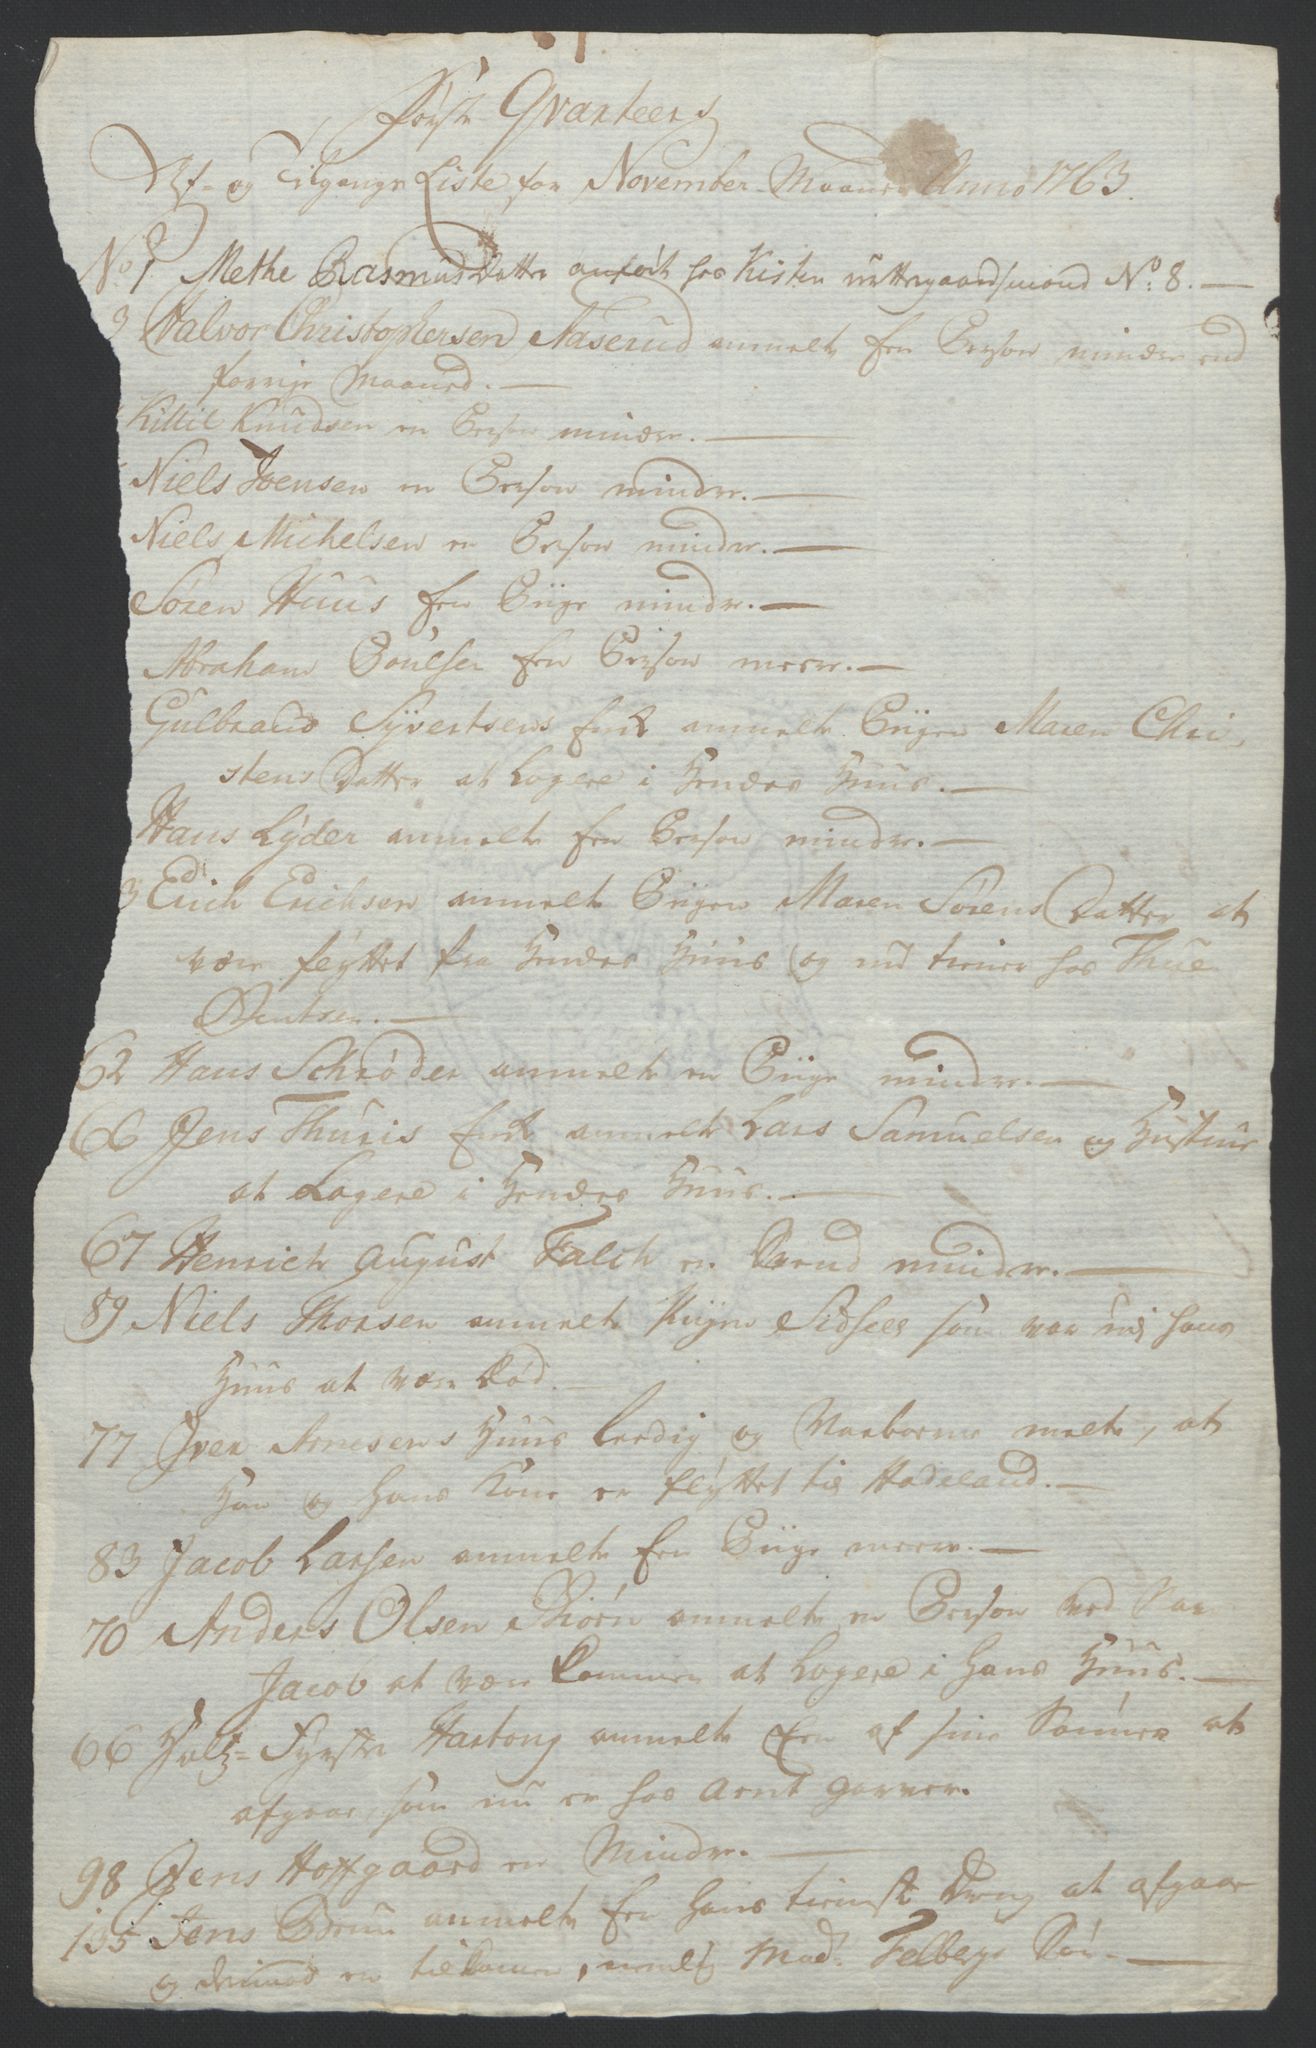 Første Qvarteers
Af- og Tilgangs Liste for November Maaned Anno 1763.
No 1 Methe Rasmus Datter anført hos Kisten No: 8. —
3 Halvor Christophersen Aaserud anmelt Een Person mindre end
forrige Maaned. —
Kittil Knudsen en Person mindre. —
Niels Joensen en Person mindre. —
Niels Michelsen en Person mindre. —
Sören Huus Een Piige mindre. —
Abraham Poulsen Een Person meere. —
Gulbrand Syvertsens Enke anmelte Pigen Maren Chri-
stens Datter at Logere i Hendes Huus. —
Hans Lyder anmelt Een Person mindre. —
3 Erich Erichsen anmelte Pigen Maren Sörens Datter at
være flyttet fra Hendes Huus og nu tiener hos Thue
Bentsen. —
62 Hans Schröder anmelte en Piige mindre. —
66 Jens Thuris Enke anmelte Lars Samuelsen og Hustrue
at Logere i Hendes Huus. —
67 Henrich August Falch en Svend mindre. —
89 Niels Thorsen anmelte Sidsell som var udj hans
Huus at være Död. —
77 Iver Arnesens Huus Leedig og Naaboerne melte, at
Han og hans Kone er flyttet til Hadeland. —
83 Jacob Larsen anmelte Een Piige meere. —
70 Anders Olsen Biörn anmelte en Person ved Nav
Jacob at være kommen at Logere i hans Huus. —
66 Holtz-Fyrster Hartong anmelte Een af sine Sönner at
afgaae, som nu er hos Arnt garver.
98 Jens Hoffgaard en Mindre. —
135 Jens Brun anmelte Een hans tieneste Dreng at afgaae
og derimod en tilkommen, nemlig Mad. Felbergs Sön. —